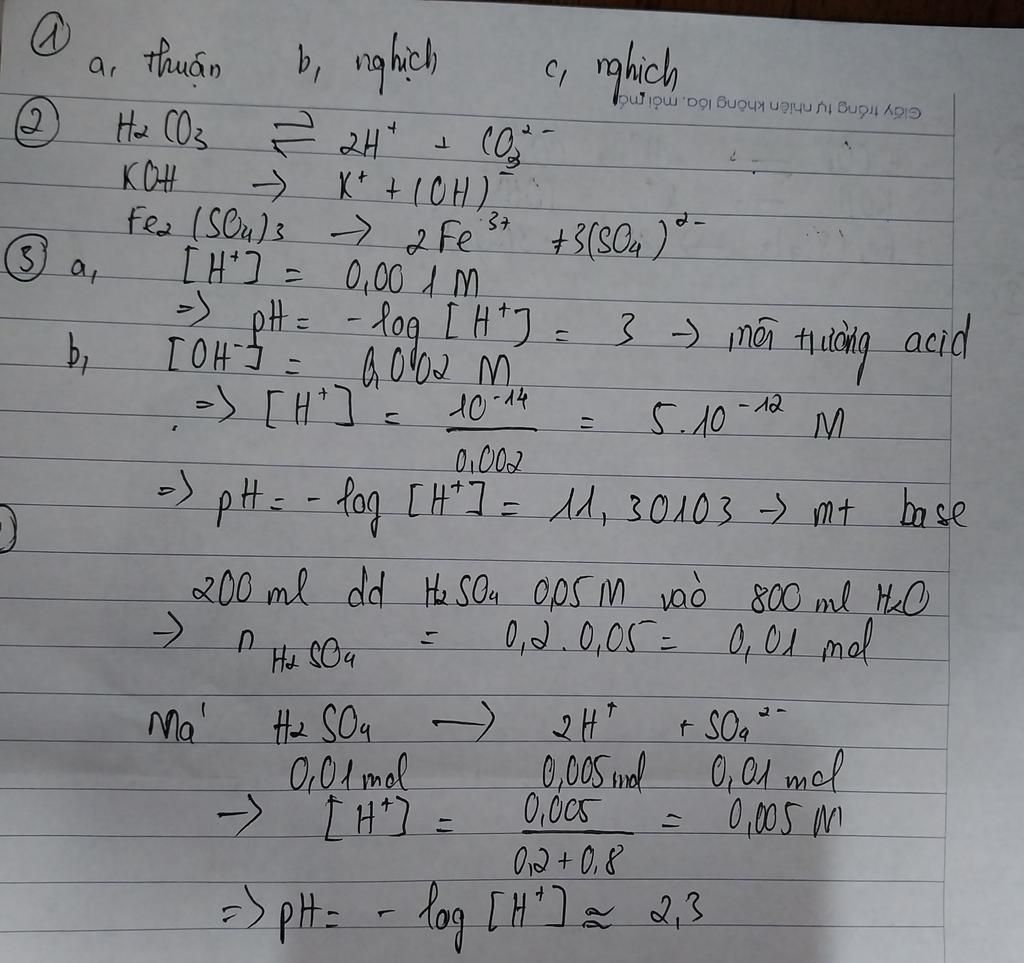 ① a, thuận b, nghịch c, nghịch
Giấy trắng tự nhiên không lóa, mỏi mắt
② H2CO3 ⇌ 2H⁺ + CO3²⁻
KOH → K⁺ + (OH)⁻
Fe2(SO4)3 → 2Fe³⁺ + 3(SO4)²⁻
③ a, [H⁺] = 0,001 M
=> pH = - log [H⁺] = 3 → môi trường acid
b, [OH⁻] = 0,002 M
=> [H⁺] = 10⁻¹⁴ / 0,002 = 5.10⁻¹² M
=> pH = - log [H⁺] = 11,30103 → mt base
200 ml dd H2SO4 0,05 M vào 800 ml H2O
→ n H2SO4 = 0,2 . 0,05 = 0,01 mol
Mà H2SO4 → 2H⁺ + SO4²⁻
0,01 mol 0,005 mol 0,01 mol
→ [H⁺] = 0,005 / 0,2 + 0,8 = 0,005 M
=> pH = - log [H⁺] ≈ 2,3